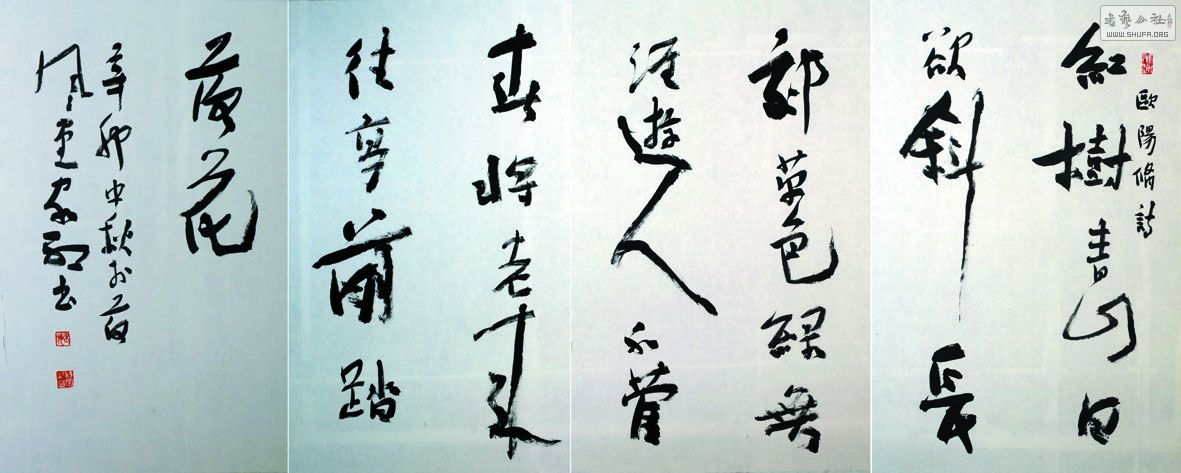 歐陽脩詩
紅樹青山日
欲斜長
郊草色綠無
涯遊人不管
春將老來
往亭前踏
落花
辛卯中秋於
書
书艺公社
WWW.SHUFA.ORG